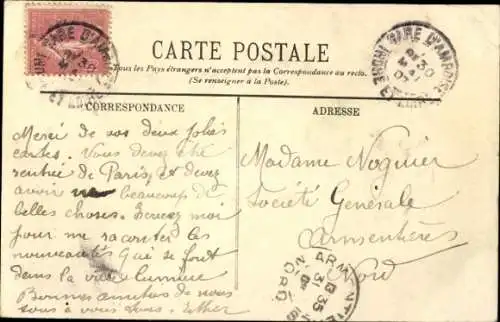 CARTE POSTALE
Tous les Pays étrangers n'acceptent pas la Correspondance au recto.
(Se renseigner à la Poste).
CORRESPONDANCE
Merci de vos deux jolies
cartes. Vous devez être
rentrée de Paris, et devez
avoir beaucoup de
belles choses. Ecrivez moi
pour me raconter les
nouveautés que se font
dans la ville lumière
Bonnes amitiés de nous
tous à vous tous. Esther
ADRESSE
Madame Noguier
Société Générale
Armentières
Nord
GARE D'AMBOISE
30
GARE D'AMBOISE
30
ARMENTIE
13 35
31
NORD